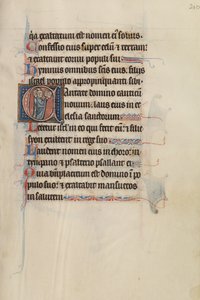 q̃a exaltatum est nomen eiꝰ solius
Confessio eius super celū ⁊ terram:
⁊ exaltauit cornu populi sui
Hymnus omnibus scīs eius. filiis
isrl̓
Cantate domino canticū
nouum: laus eius in ec
clesia sanctorum
Letetur isrl̓ in eo qui fecit eū: ⁊ fili
syon exultent in rege suo
Laudent nomen eius in choro: in
tympano ⁊ psalterio psallant ei
Quia beneplacitum est domino ī po
pulo suo: ⁊ exaltabit mansuetos
in salutem